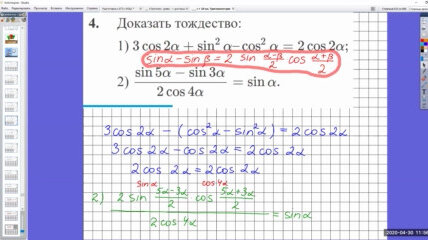 4. Доказать тождество:
1) 3 cos 2α + sin² α – cos² α = 2 cos 2α;
sinα – sinβ = 2 sin (α–β)/2 cos (α+β)/2
2) (sin 5α – sin 3α)/(2 cos 4α) = sin α.
3cos 2α – (cos²α – sin²α) = 2cos2α
3cos 2α – cos2α = 2cos 2α
2cos 2α = 2cos2α
sinα cos4α
2) (2 sin (5α–3α)/2 cos (5α+3α)/2)/(2cos4α) = sinα